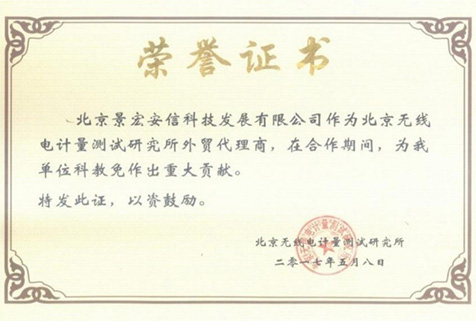 荣誉证书
北京景宏安信科技发展有限公司作为北京无线
电计量测试研究所外贸代理商，在合作期间，为我
单位科教免作出重大贡献。
特发此证，以资鼓励。
北京无线电计量测试研究所
二〇一七年五月八日